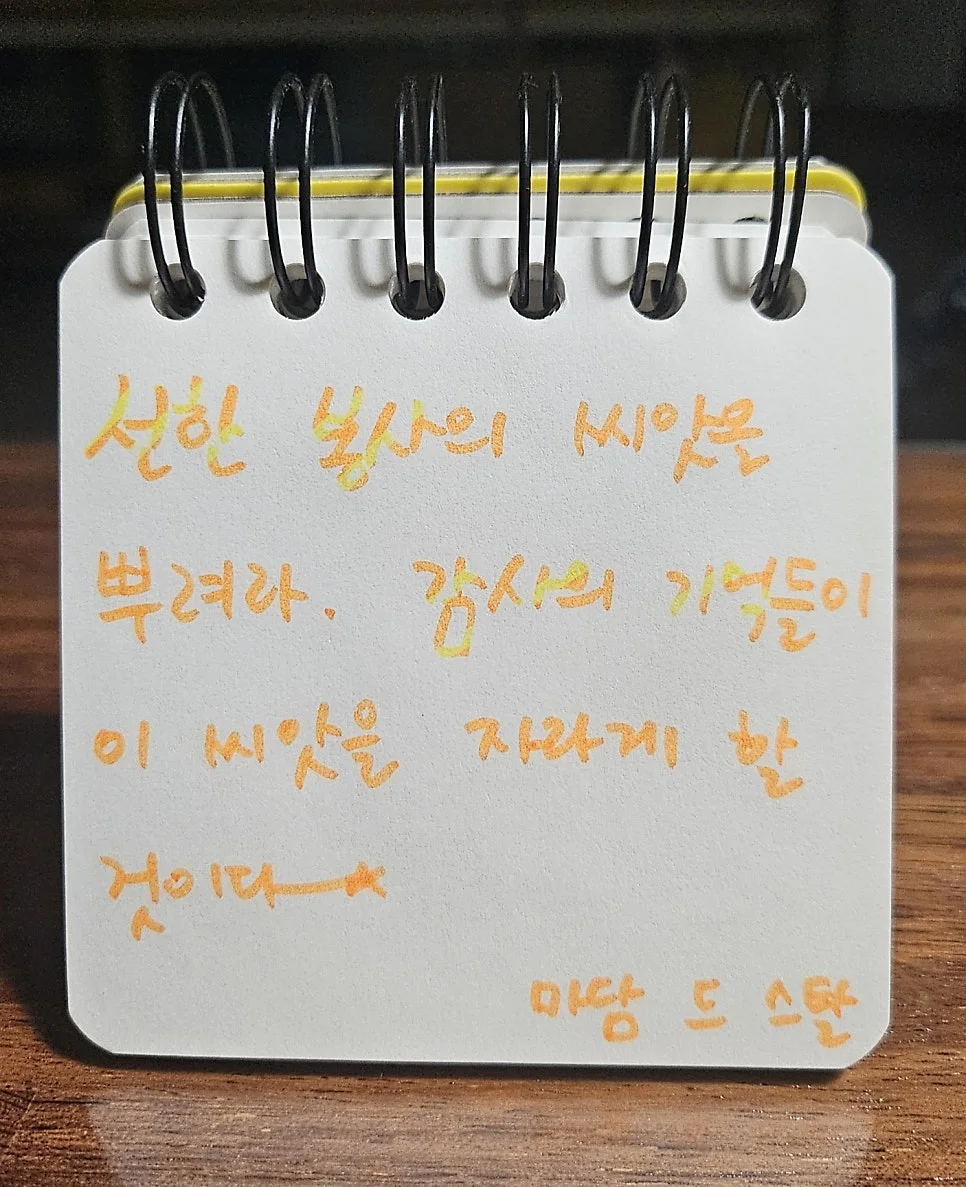 선한 봉사의 씨앗을
뿌려라. 감사의 기억들이
이 씨앗을 자라게 할
것이다
마담 드 스탈